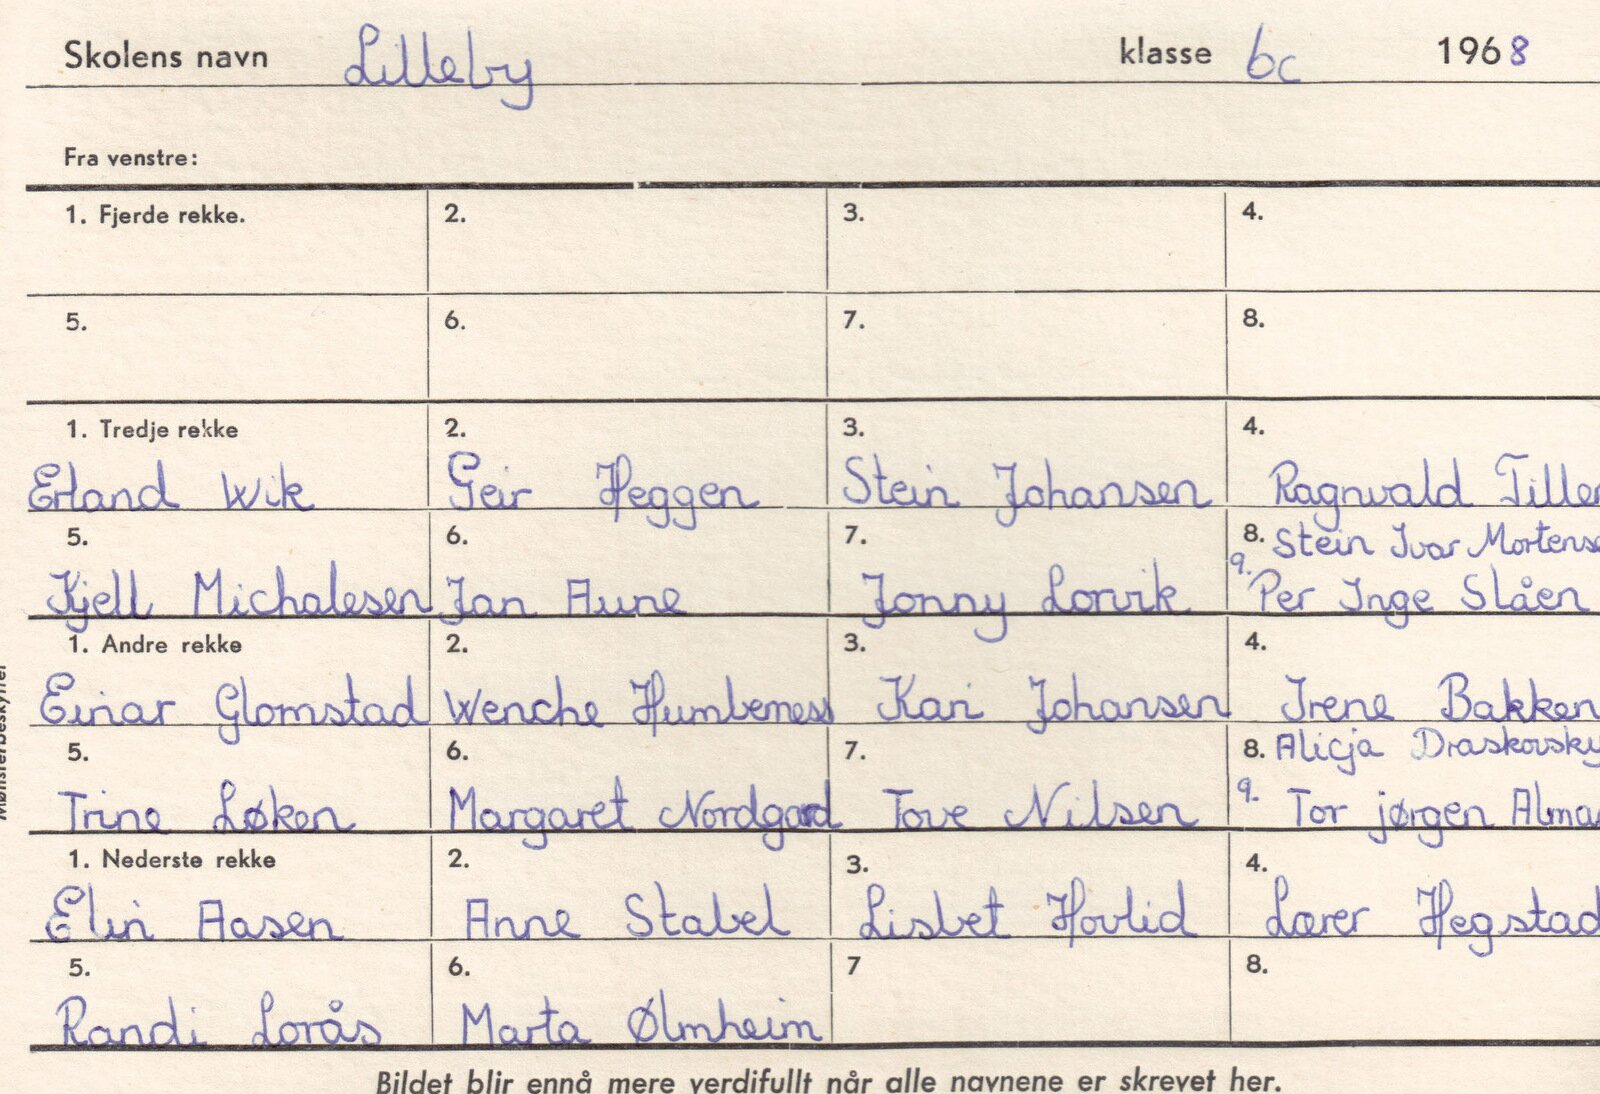 Skolens navn Lilleby klasse 6c 1968
Fra venstre:
1. Fjerde rekke. 2. 3. 4.
5. 6. 7. 8.
1. Tredje rekke 2. 3. 4.
Erland Wik Geir Heggen Stein Johansen Ragnvald Tiller
5. 6. 7. 8. Stein Ivar Mortense
Kjell Michalesen Jan Aune Jonny Lorvik 9. Per Inge Slåen
1. Andre rekke 2. 3. 4.
Einar Glomstad Wenche Kari Johansen Irene Bakken
5. 6. 7. 8. Alicja Draskovsky
Trine Løken Margaret Nordgard Tove Nilsen 9. Tor jørgen Alma
1. Nederste rekke 2. 3. 4.
Elin Aasen Anne Stabel Lisbet Hovlid Lærer Hegstad
5. 6. 7 8.
Randi Lorås Marta Ølmheim
Bildet blir ennå mere verdifullt når alle navnene er skrevet her.